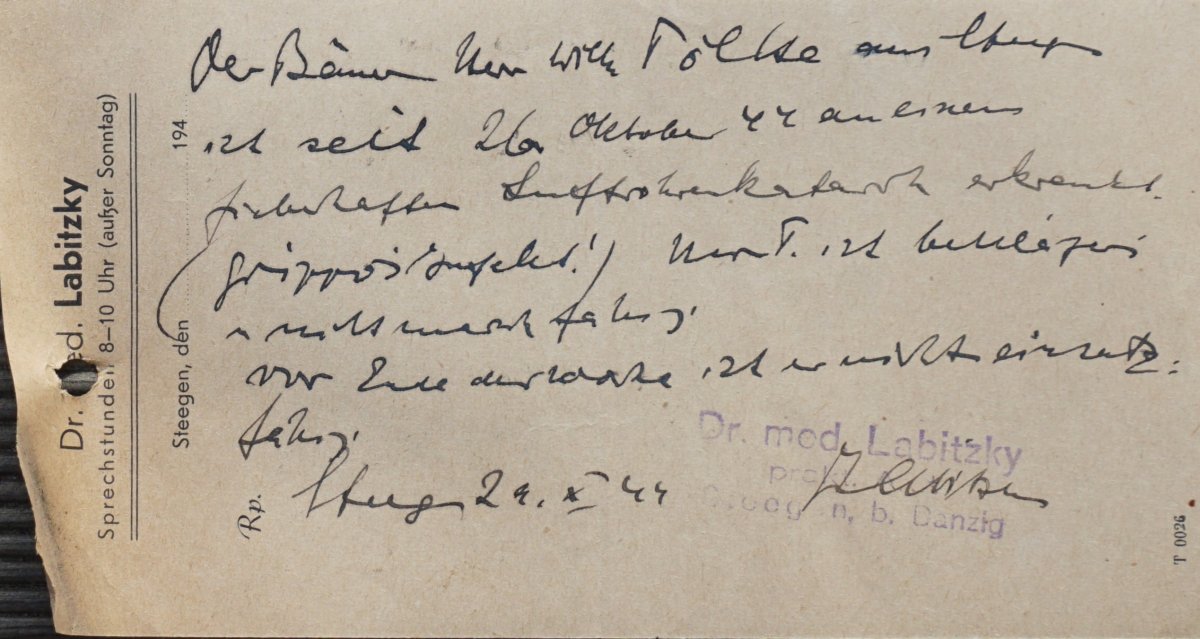 Dr. med. Labitzky
Sprechstunden 8–10 Uhr (außer Sonntag)
Steegen, den 194
Der Bauer Herr Willi Töltke aus Steegen
ist seit 26. Oktober 44 an einem
fieberhaften Luftröhrenkatarrh erkrankt.
(grippöser Infekt!) Herr T. ist bettlägerig
u nicht marschfähig.
vor Ende der Woche ist er nicht einsatz-
fähig.
Rp.
Steegen 29. X 44
Dr. med. Labitzky
prakt.
Steegen, b. Danzig
T 0026